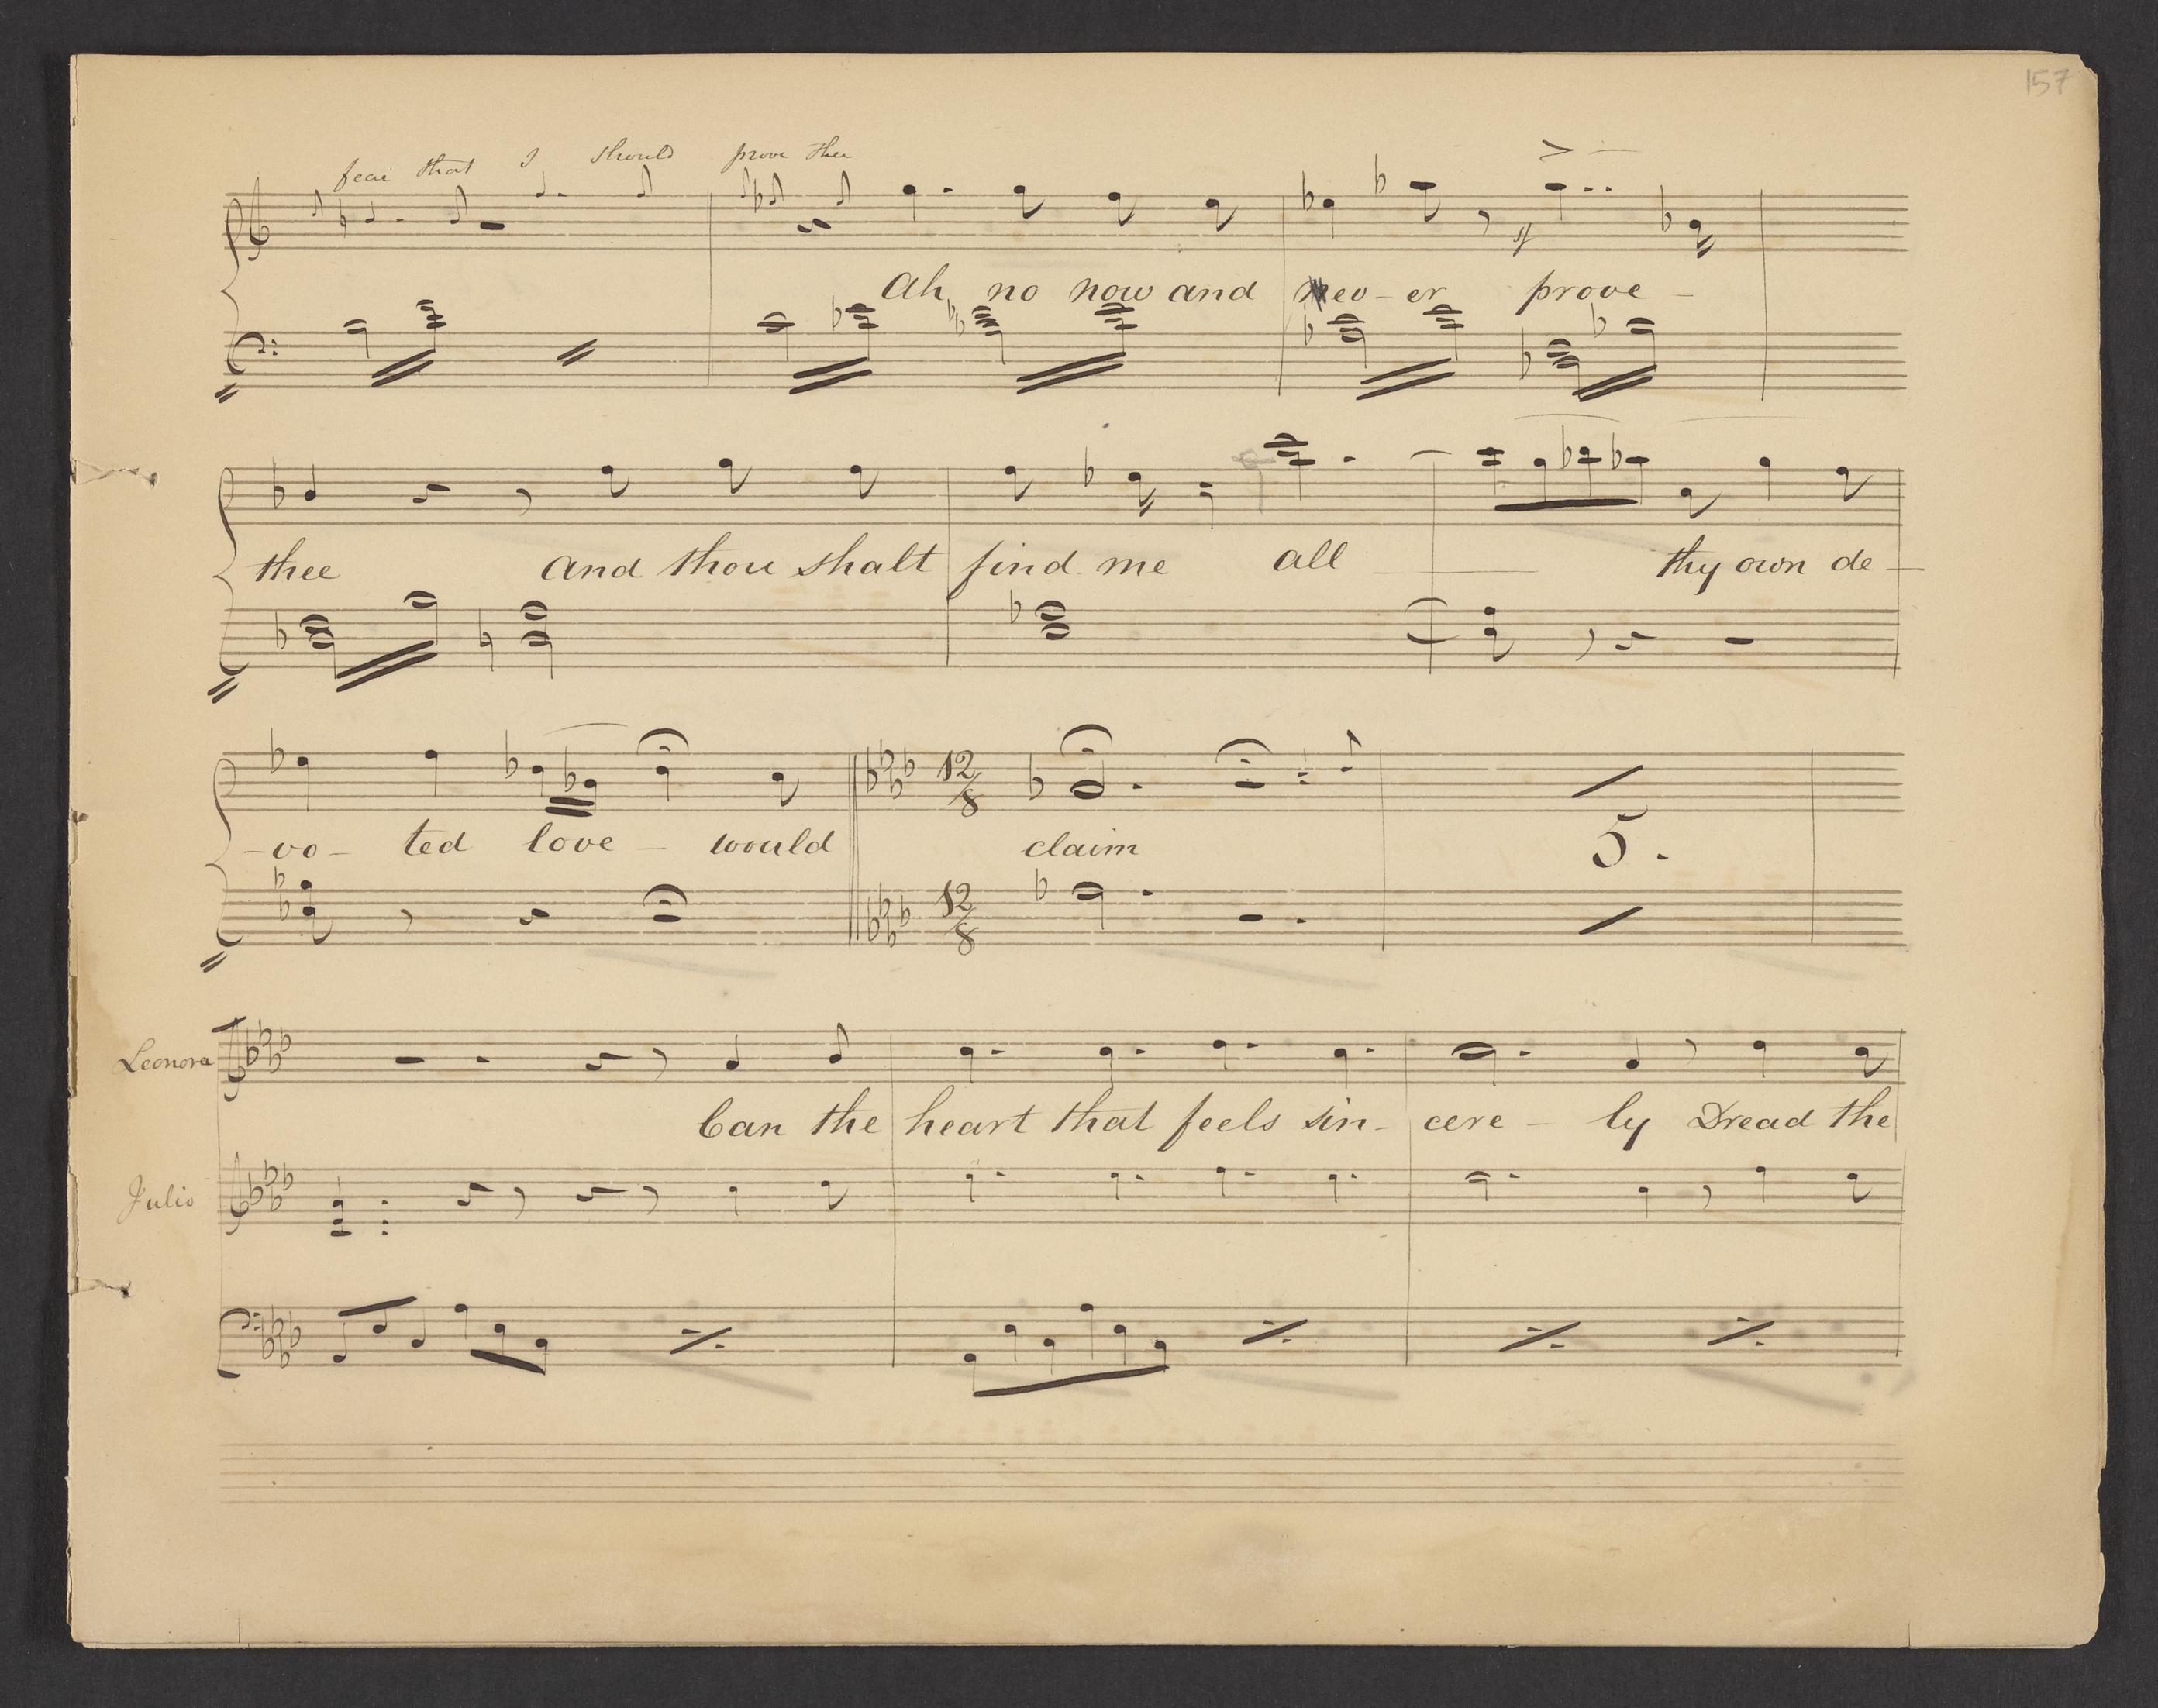 157
fear that I should prove thee
Ah no now and nev - er prove -
thee and thou shalt find me all thy own de -
- vo - ted love - would claim
12/8
5.
12/8
Leonora
Can the heart that feels sin - cere - ly Dread the
Julio